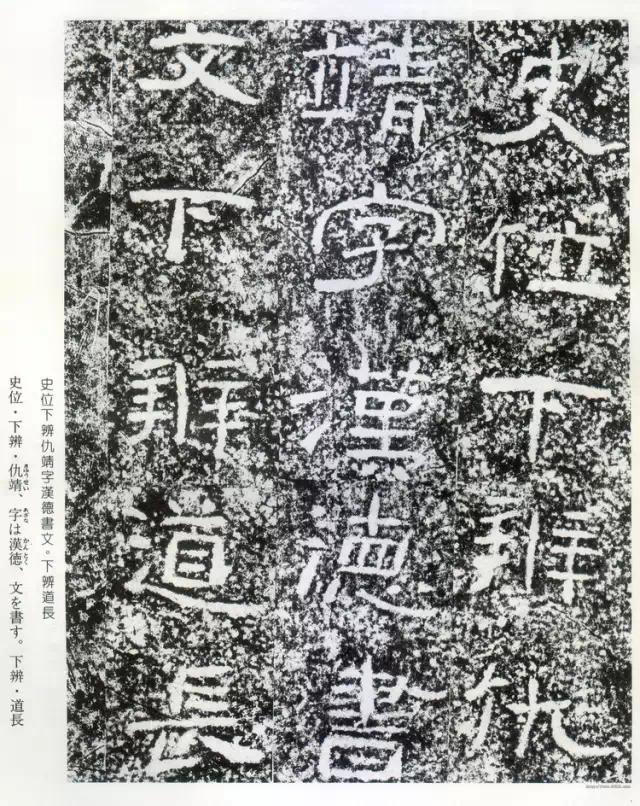 史位下辨仇
靖字漢德書
文下辨道長
史位下辨仇靖字漢德書文。下辨道長
史位・下辨・仇靖、字は漢德、文を書す。下辨・道長
きゅうせい
あざな
かんとく